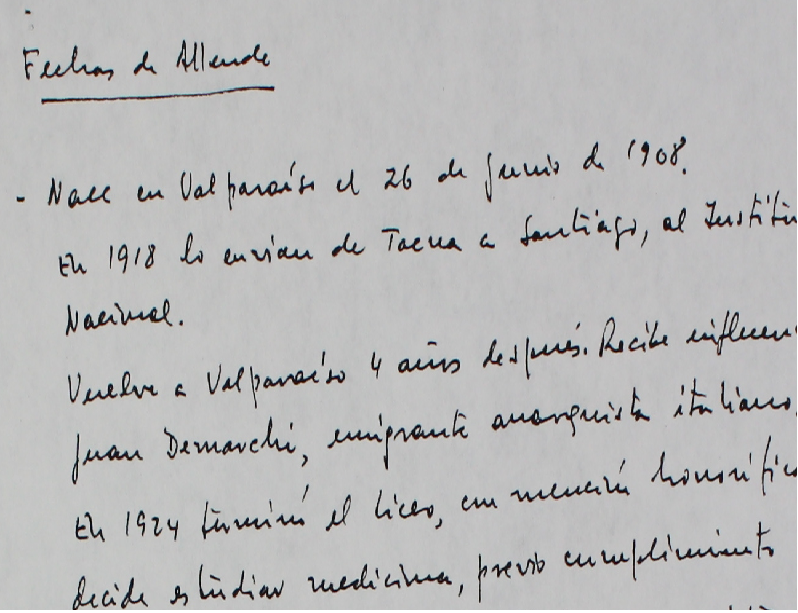 Fechas de Allende
- Nace en Valparaíso el 26 de junio de 1908.
En 1918 lo envian de Tacna a Santiago, al Institu
Nacional.
Vuelve a Valparaíso 4 años después. Recibe influen
Juan Demarchi, emigrante anarquista italiano,
En 1924 terminó el liceo, con mención honorífica
decide estudiar medicina, previo cumplimiento